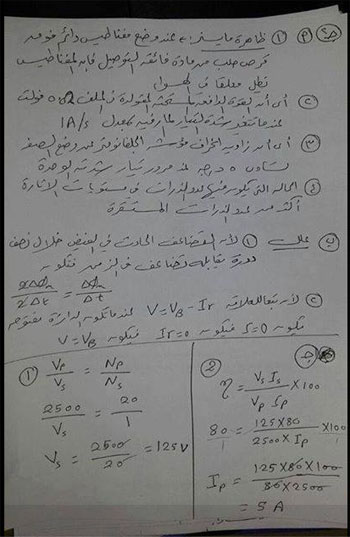 ج٤ (٩) ① ظاهرة مايسنر :- عند وضع مغناطيس دائم فوقه
قرص صلب من مادة فائقة التوصيل فإن المغناطيس
يظل معلقا في الهواء
② أي أن القوة الدافعة المستحثة المتولدة في الملف 0.2 فولت
عندما تتغير شدة التيار المار فيه بمعدل 1A/s
③ أي أن زاوية انحراف مؤشر الجلفانومتر عن وضع الصفر
تساوي ٥ درجة عند مرور تيار شدته الوحدة
④ الحالة التي يكون فيها عدد الذرات في مستويات الإثارة
أكثر من عدد الذرات المستقرة
ب) علل ① لأن التضاعف الحادث في الفيض خلال نصف
دورة يقابله تضاعف في الزمن فتكون
2Δϕm / 2Δt = Δϕm / Δt
② لأنه تبعا للعلاقة V = VB - Ir عندما تكون الدائرة مفتوحة
تكون I=0 فيكون Ir=0 فيكون V=VB
①
Vp / Vs = Np / Ns
2500 / Vs = 20 / 1
Vs = 2500 / 20 = 125 V
ج
2
η = Vs Is / Vp Ip × 100
80 / 1 = 125 × 80 / 2500 × Ip × 100
Ip = 125 × 80 × 100 / 80 × 2500
= 5 A